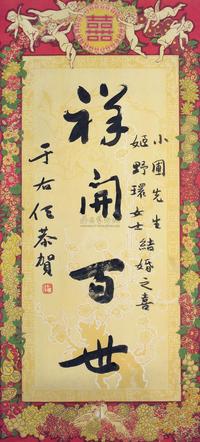 囍
小圃先生
姬野環女士結婚之喜
祥開百世
于右任恭賀